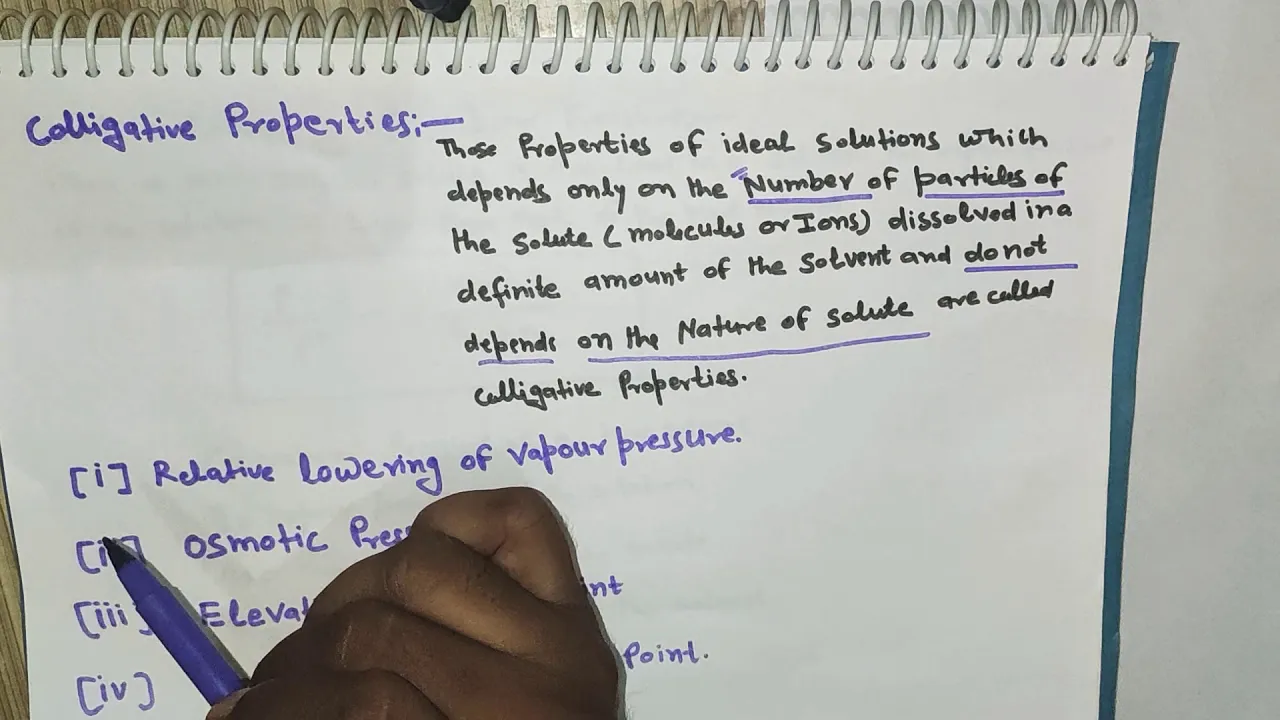 Colligative Properties;—
Those Properties of ideal solutions which
depends only on the "Number of particles of
the solute (molecules or Ions) dissolved in a
definite amount of the solvent and do not
depends on the Nature of solute are called
colligative Properties.
[i] Relative lowering of vapour pressure.
[ii] Osmotic
[iii]
[iv] Point.